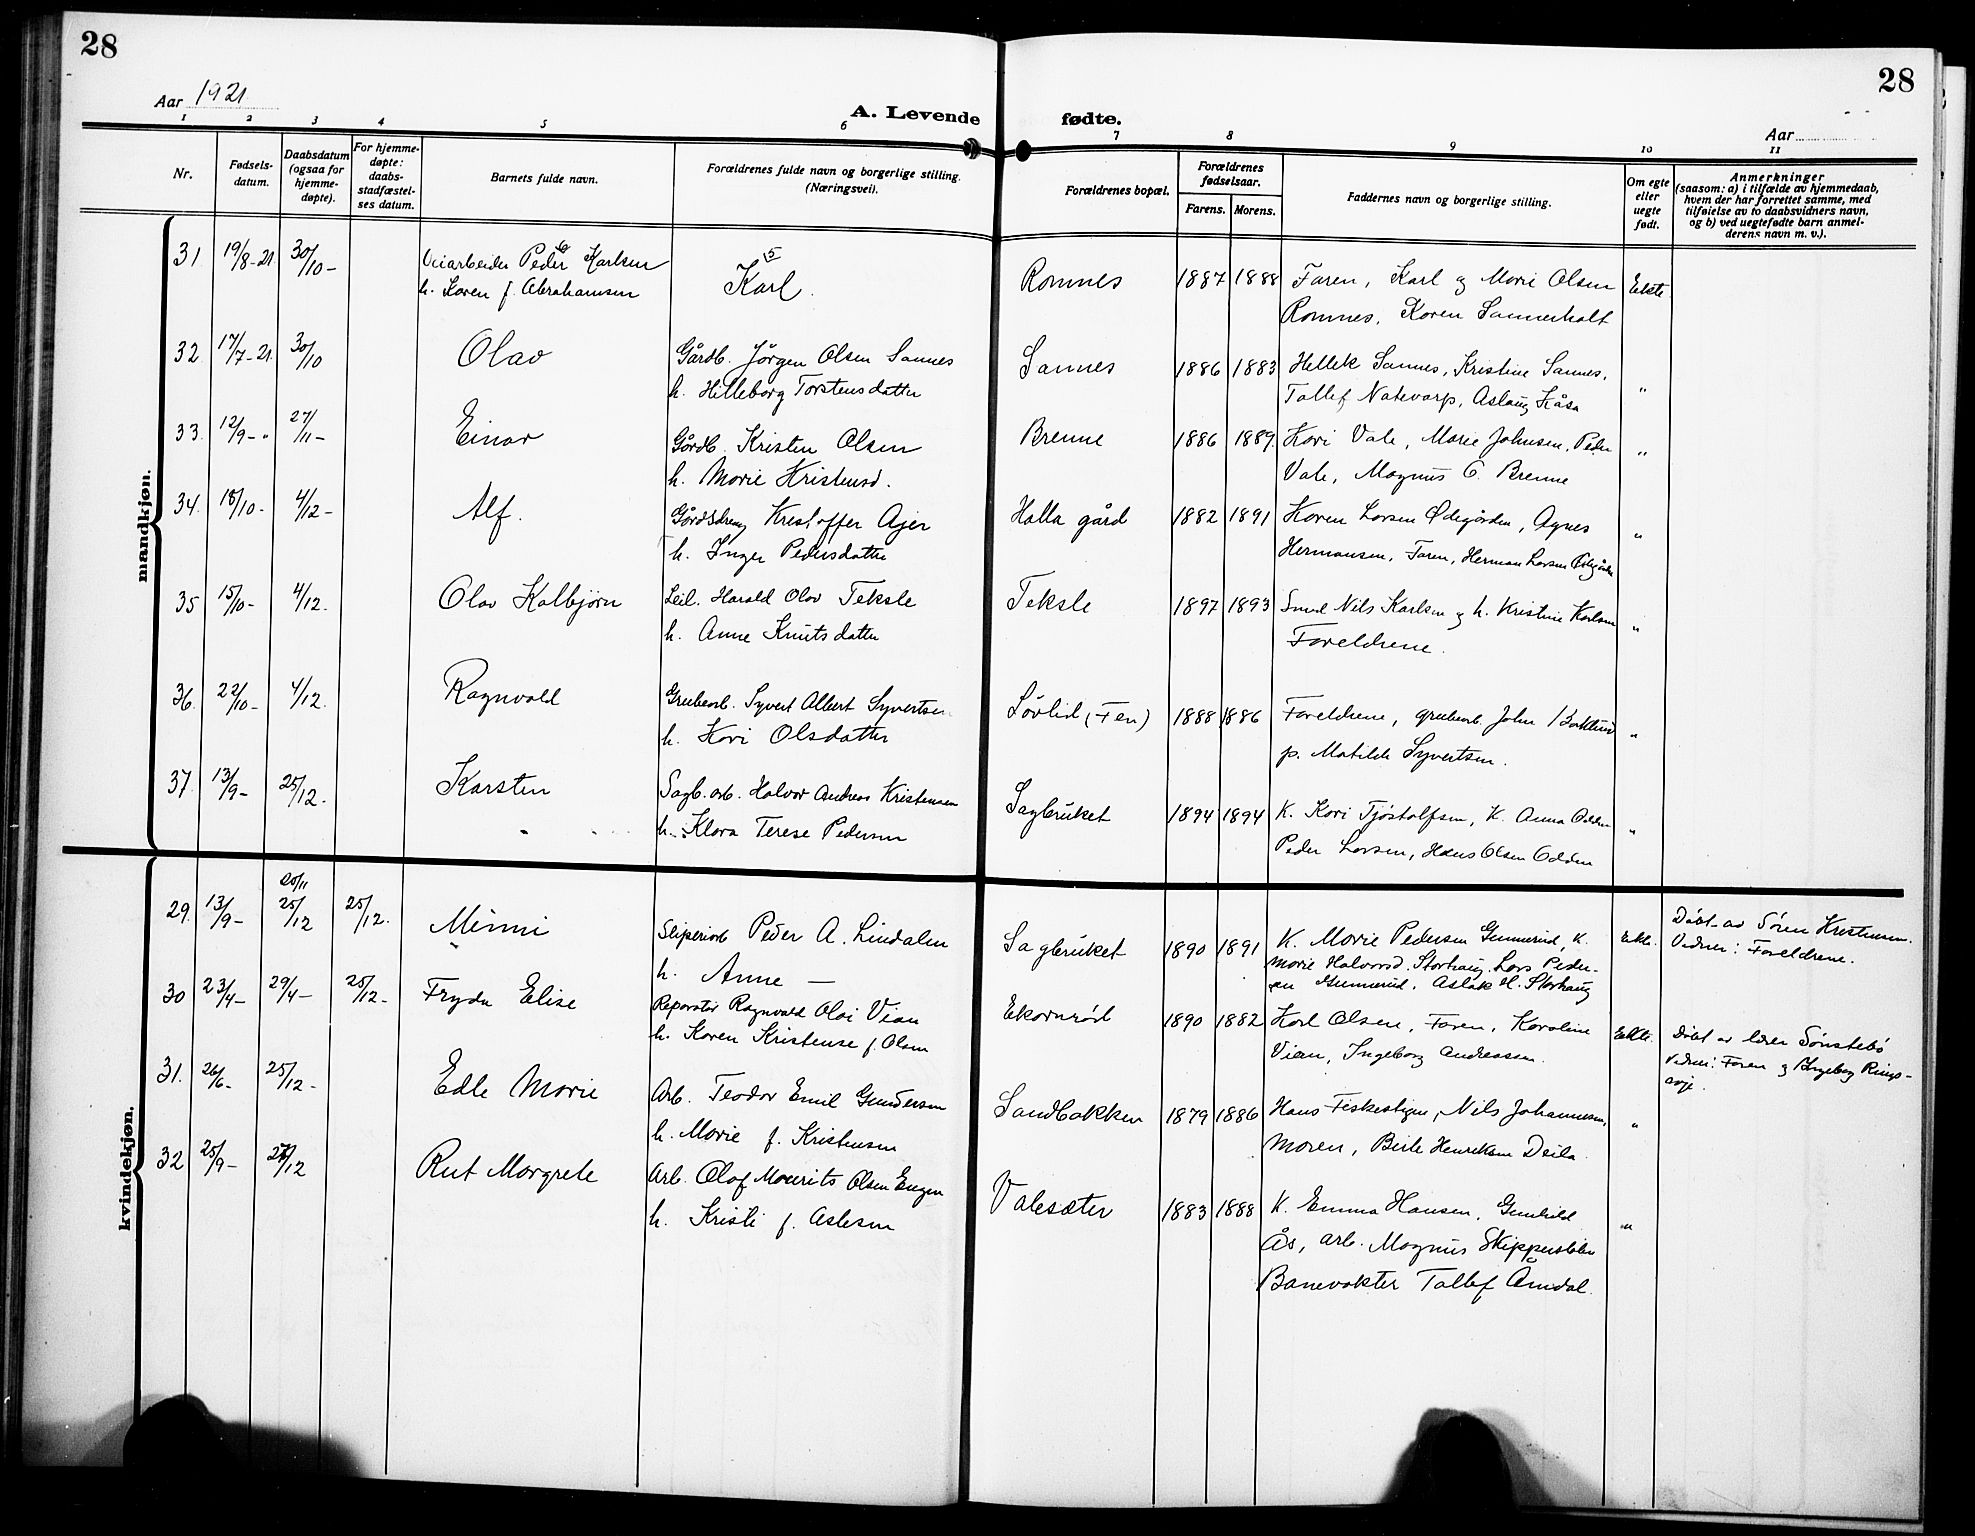 28
28
Aar 1921
A. Levende fødte.
Aar
1 2 3 4 5 6 7 8 9 10 11
Nr.
Fødsels-
datum.
Daabsdatum
(ogsaa for
hjemme-
døpte).
For hjemme-
døpte:
daabs-
stadfæstel-
ses datum.
Barnets fulde navn.
Forældrenes fulde navn og borgerlige stilling.
(Næringsvei).
Forældrenes bopæl.
Forældrenes
fødselsaar.
Farens. Morens.
Faddernes navn og borgerlige stilling.
Om egte
eller
uegte
født.
Anmerkninger
(saasom: a) i tilfælde av hjemmedaab,
hvem der har forrettet samme, med
tilføielse av to daabsvidners navn,
og b) ved uegtefødte barn anmel-
derens navn m. v.).
mandkjøn.
31 19/8-21 30/10- Veiarbeider Peder Karlsen 6 Karl. 5 Romnes 1887 1888 Faren, Karl og Marie Olsen Ekte.
h. Karen f. Abrahamsen Romnes, Karen Sannerholt
32 17/7-21. 30/10 Olav Gårdb. Jörgen Olsen Sannes Sannes 1886 1883 Hellek Sannes, Kristine Sannes, "
h. Hilleborg Torstensdatter Tallef Natevarp, Aslaug Kåsa
33. 12/9-" 27/11- Einar Gårdb. Kristen Olsen Brenne 1886 1889. Kari Vale, Marie Johnsen, Peder "
h. Marie Kristensd. Vale, Magnus O. Brenne
34. 18/10- 4/12- Alf. Gårdsdreng Kristoffer Ajer Halla gård 1882 1891 Karen Larsen Ødegården, Agnes "
h. Inger Pedersdatter Hermansen, Faren, Herman Larsen Ødegården
35 15/10- 4/12. Olav Kolbjörn Leil. Harald Olav Teksle Teksle 1897 1893 Smed Nils Karlsen og h. Kristine Karlsen "
h. Anne Knutsdatter Foreldrene.
36. 22/10- 4/12. Ragnvald Grubearb. Syvert Albert Syvertsen Lövlid (Fen) 1888 1886 Foreldrene, grubearb. John "
h. Kari Olsdatter p. Matilde Syvertsen.
37. 13/9- 25/12. Karsten Sagb. arb. Halvor Andreas Kristensen Sagbruket 1894 1894 K. Kari Tjöstolfsen, K. Anna Odden "
h. Klara Terese Pedersen Peder Larsen, Hans Olsen Odden
kvindekjøn.
29. 13/9- 20/11 25/12 25/12. Minni Sliperiarb Peder A. Lindalen Sagbruket 1890 1891 K. Marie Pedersen Gunnerud, K. Ekte. Döbt av Sören Kristensen.
h. Anne — Marie Halvorsd. Storhaug. Lars Peder- Vidner: Foreldrene.
sen Gunnerud, Aslak H. Storhaug
30 23/4- 29/4- 25/12- Fryda Elise Reparatör Ragnvald Olai Vian Ekornröd 1890 1882 Karl Olsen, Faren, Karoline Ekte. Döbt av lærer Sönstebö
h. Karen Kristense f. Olsen Vian, Ingeborg Andreassen. Vidner: Faren og Ingeborg Rings-
31. 26/6- 25/12- Edle Marie Arb. Teodor Emil Gundersen Sandbakken 1879 1886 Hans Fiskestigen, Nils Johannessen, "
h. Marie f. Kristensen Moren, Berte Henriksen Deila
32 25/9- 27/12 Rut Margrete Arb. Olaf Mourits Olsen Engen Valesæter 1883 1888 K. Emma Hansen, Gunhild "
h. Kristi f. Aslesen Ås, arb. Magnus
Banevokter Tallef Åmdal.